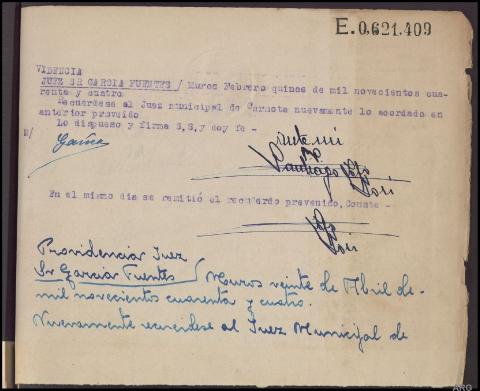 E.0,621.409
VIDENCIA
JUEZ SR GARCIA FUENTES / Muros Febrero quince de mil novecientos cua-
renta y cuatro
Recuerdese al Juez municipal de Carnota nuevamente lo acordado en
anterior proveido
Lo dispuso y firma S,S,y doy fe -
M/
ante mi
Santiago
En el mismo dia se remitió el recuerdo prevenido, Conste -
Providencia Juez
Sr Garcia Fuentes / Muros veinte de Abril de
mil novecientos cuarenta y cuatro.
Nuevamente recuerdese al Juez Municipal de